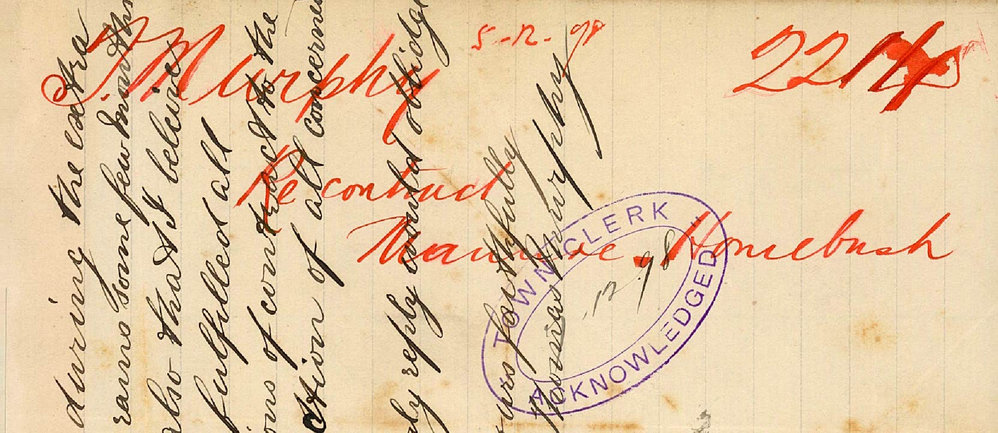 T. Murphy 5-12-98 2214
Re contract
Manure Homebush
TOWN CLERK
12.98
ACKNOWLEDGED
during the extra
rains some few months
also that I believe
fulfilled all
ions of contract to the
ction of all concerned
ly reply would oblidge
urs faithfully
Thomas Murphy